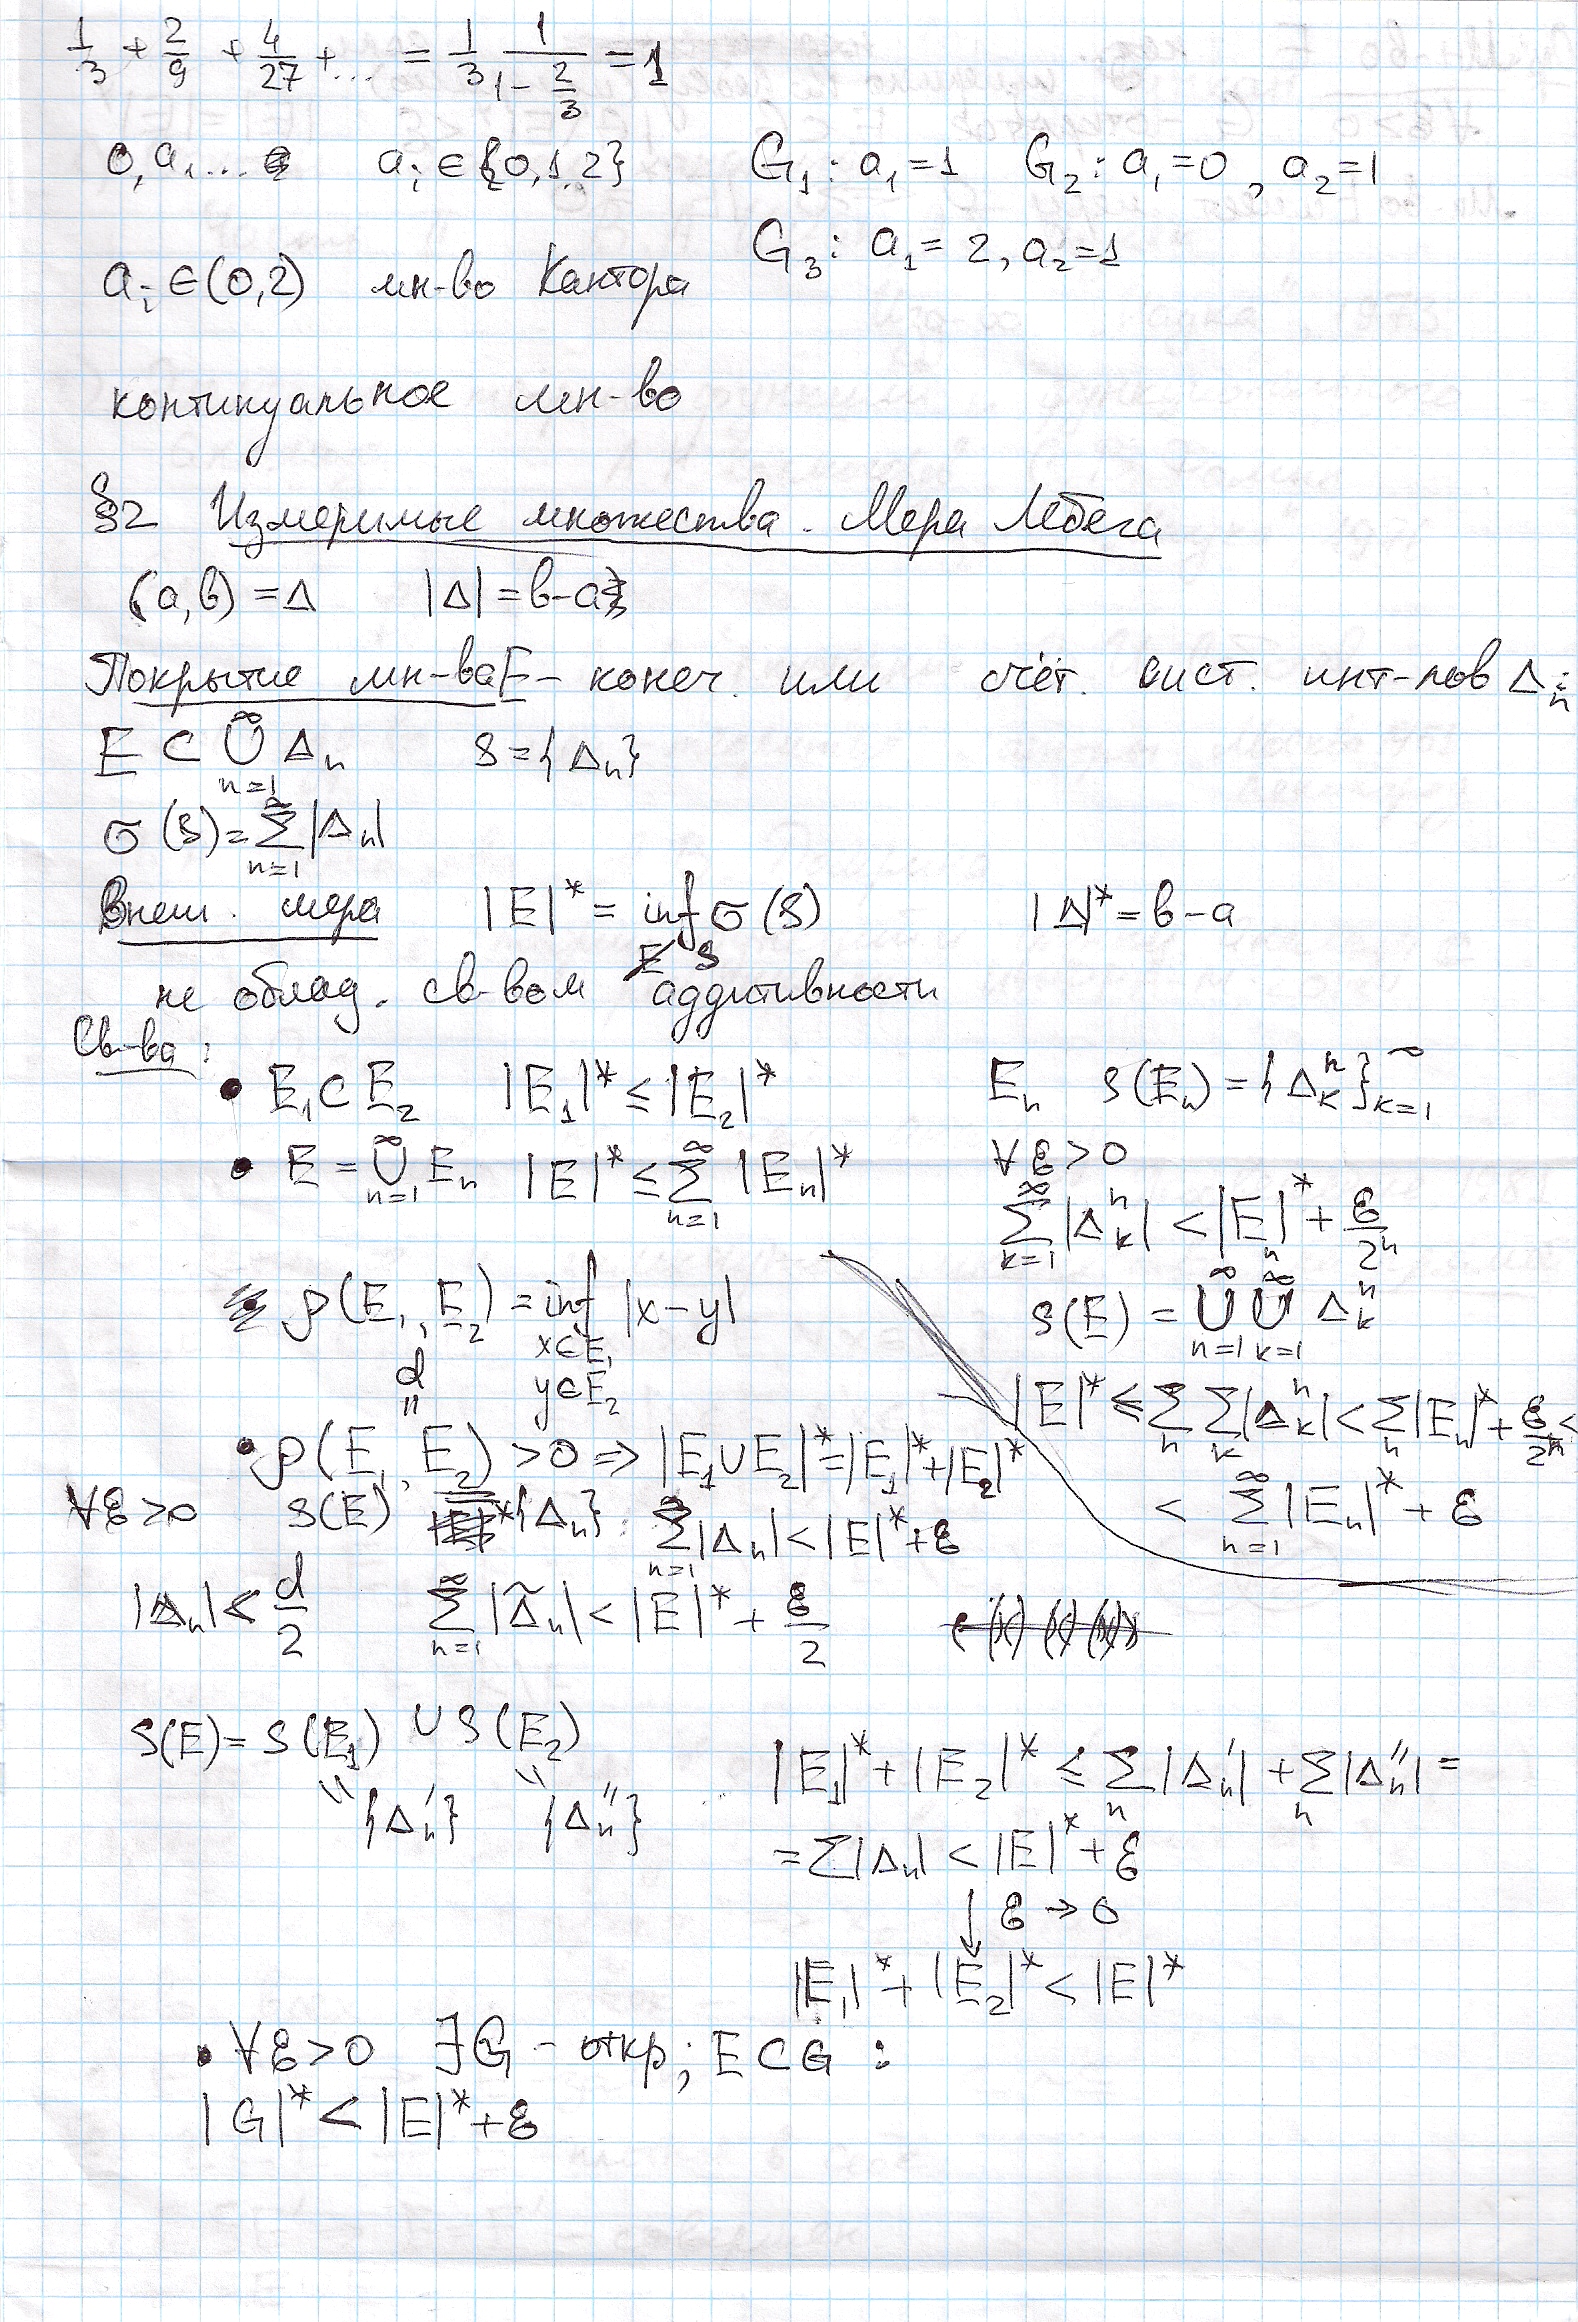 1/3 + 2/9 + 4/27 + ... = 1/3 · 1/(1 - 2/3) = 1
0,a₁... aᵢ ∈ {0,1,2} G₁: a₁=1 G₂: a₁=0, a₂=1
G₃: a₁=2, a₂=1
aᵢ ∈ (0,2) мн-во Кантора
континуальное мн-во
§2 Измеримые множества. Мера Лебега
(a,b) = Δ |Δ| = b-a
Покрытие мн-ва E - конеч. или счёт. сист. инт-лов Δₙ:
E ⊂ ⋃_{n=1}^∞ Δₙ S = {Δₙ}
σ(S) = ∑_{n=1}^∞ |Δₙ|
Внеш. мера |E|* = inf_S σ(S) |Δ|* = b-a
не облад. св-вом аддитивности
Св-ва:
• E₁ ⊂ E₂ |E₁|* ≤ |E₂|*
• E = ⋃_{n=1}^∞ Eₙ |E|* ≤ ∑_{n=1}^∞ |Eₙ|*
Eₙ S(Eₙ) = {Δₖⁿ}_{k=1}^∞
∀ε>0
∑_{k=1}^∞ |Δₖⁿ| < |Eₙ|* + ε/2ⁿ
S(E) = ⋃_{n=1}^∞ ⋃_{k=1}^∞ Δₖⁿ
|E|* ≤ ∑ₙ ∑ₖ |Δₖⁿ| < ∑ₙ |Eₙ|* + ε/2ⁿ <
< ∑_{n=1}^∞ |Eₙ|* + ε
ρ(E₁, E₂) = inf_{x∈E₁, y∈E₂} |x-y|
d
"
• ρ(E₁, E₂) > 0 ⇒ |E₁∪E₂|* = |E₁|* + |E₂|*
∀ε>0 S(E) {Δₙ}: ∑_{n=1}^∞ |Δₙ| < |E|* + ε
|Δₙ| < d/2 ∑_{n=1}^∞ |Δ̃ₙ| < |E|* + ε/2
S(E) = S(E₁) ∪ S(E₂)
" {Δₙ'} " {Δₙ''}
|E₁|* + |E₂|* ≤ ∑ₙ |Δₙ'| + ∑ₙ |Δₙ''| =
= ∑|Δₙ| < |E|* + ε
↓ ε → 0
|E₁|* + |E₂|* < |E|*
• ∀ε>0 ∃G - откр; E ⊂ G :
|G|* < |E|* + ε